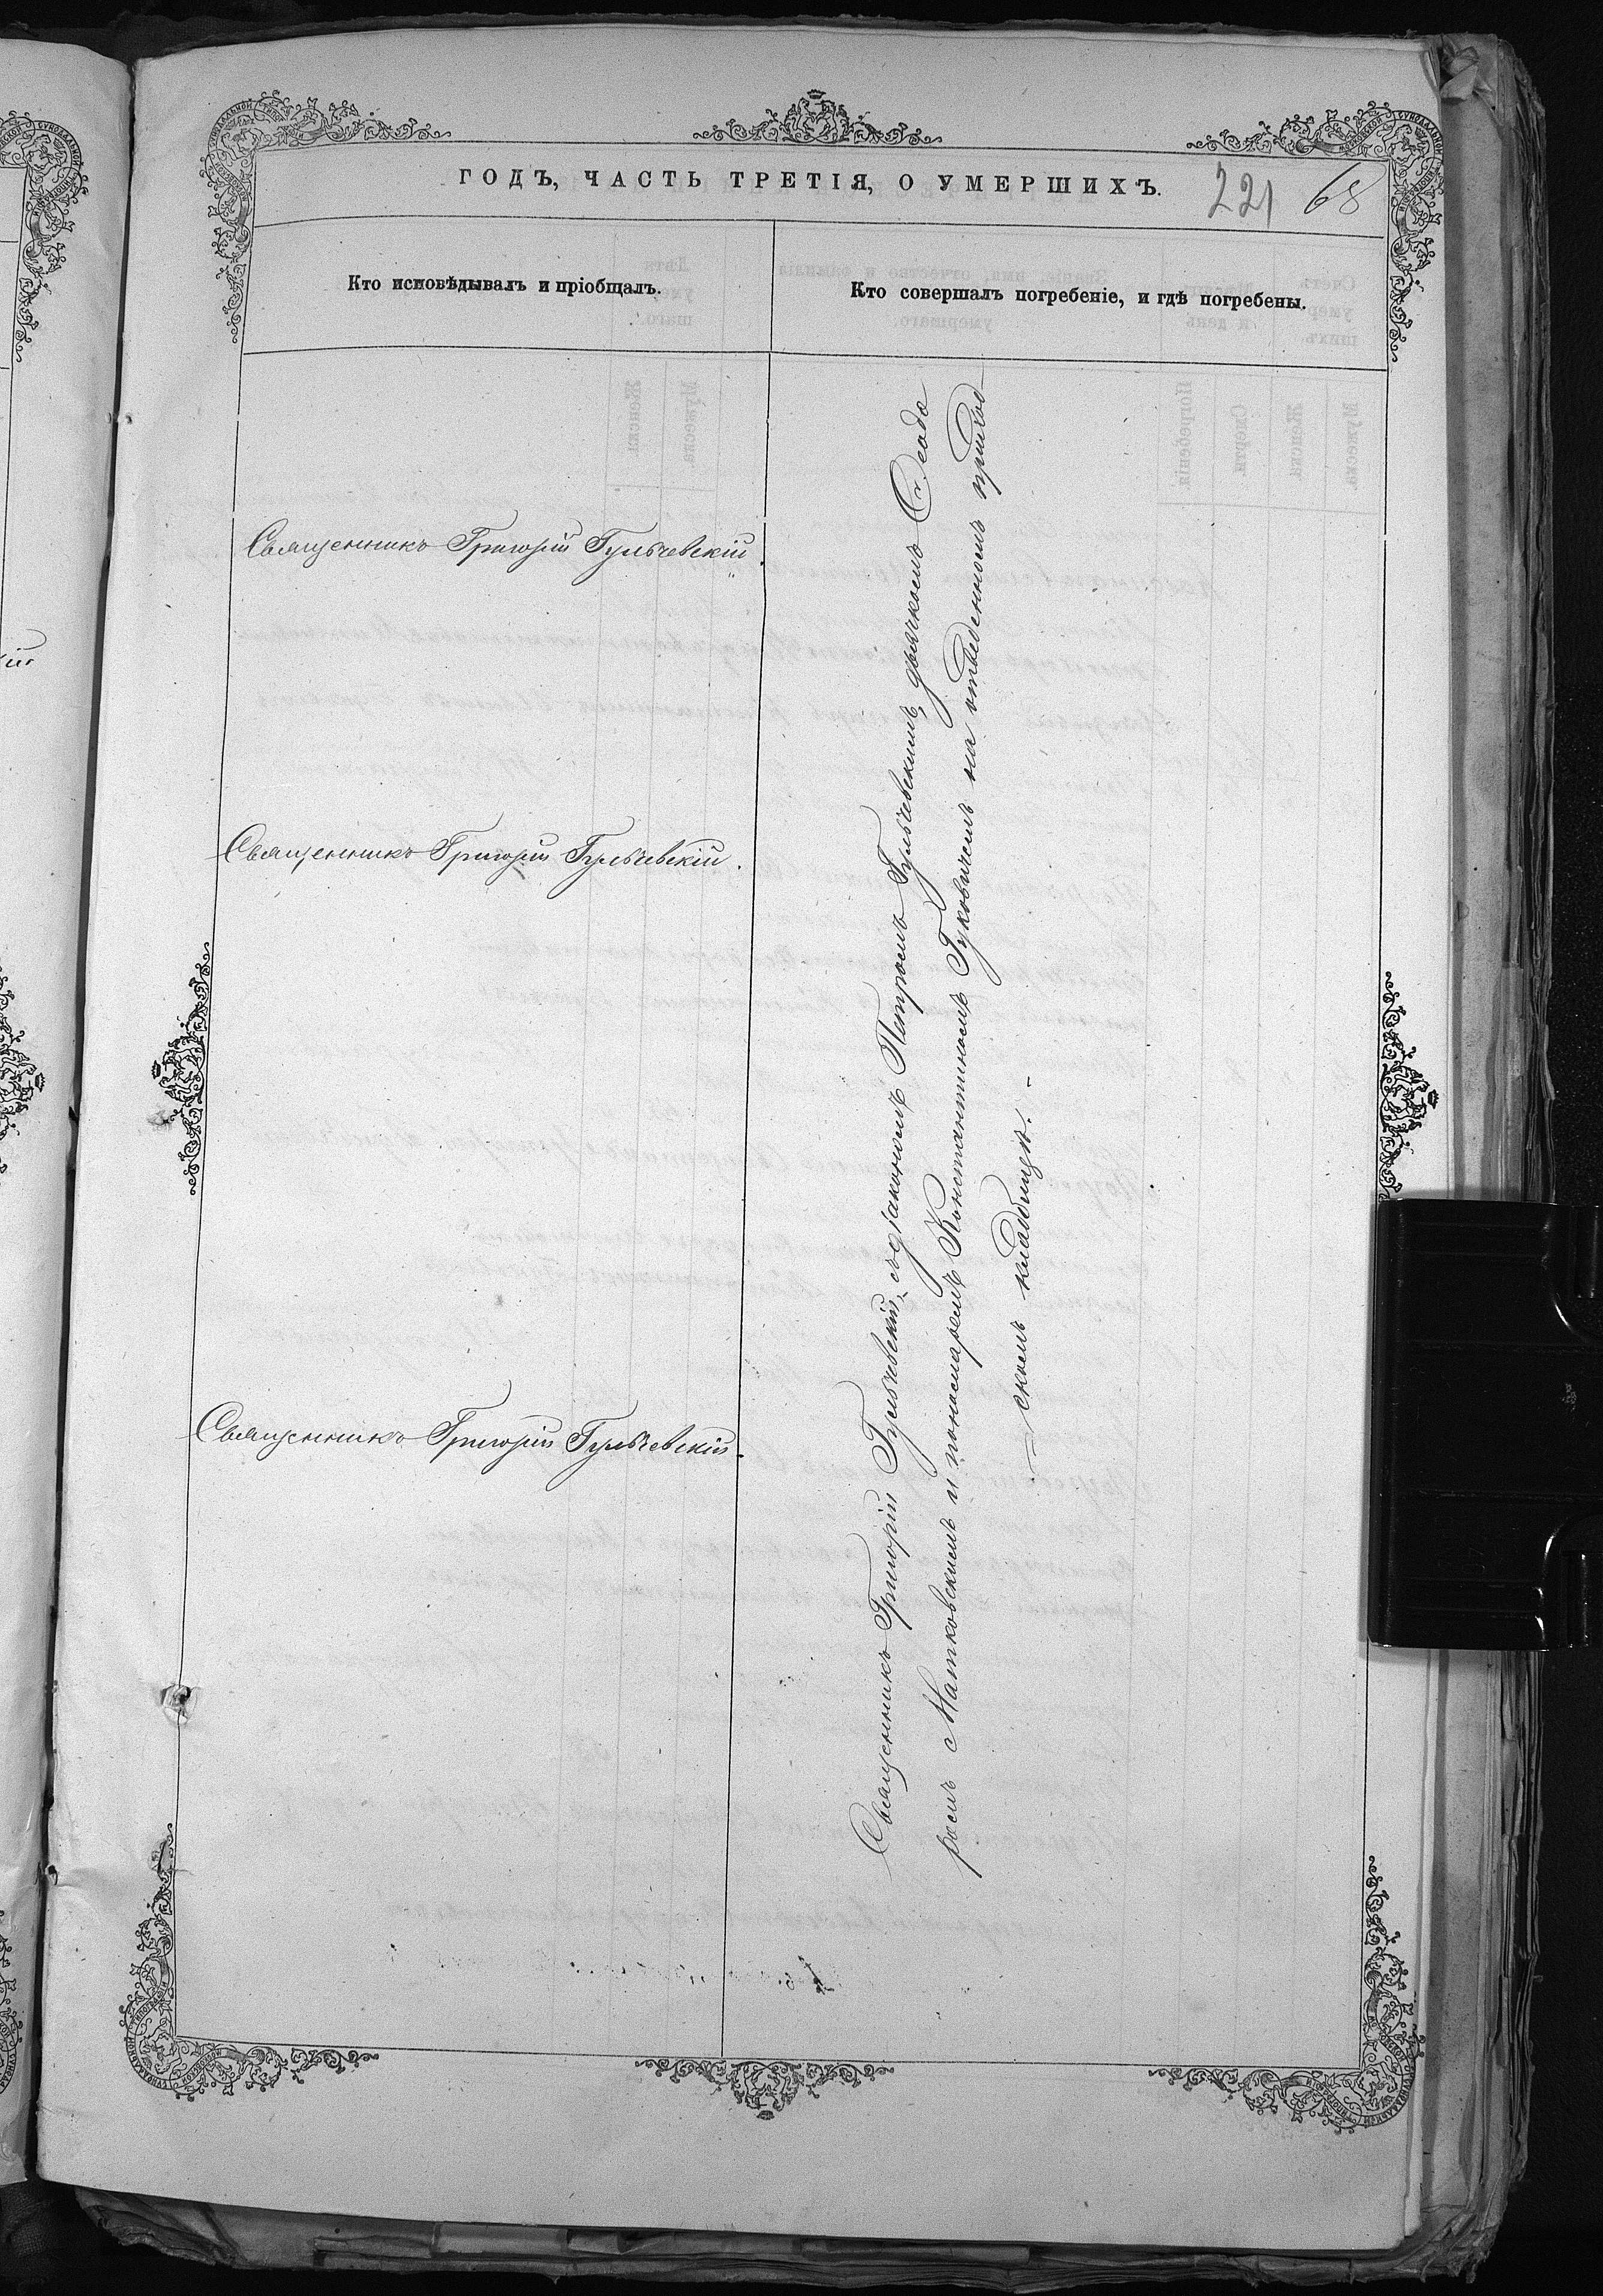 ГОДЪ, ЧАСТЬ ТРЕТІЯ, О УМЕРШИХЪ.
221 68
Кто исповѣдывалъ и пріобщалъ.
Кто совершалъ погребеніе, и гдѣ погребены.
Священникъ Григорій Гульчевскій.
Священникъ Григорій Гульчевскій.
Священникъ Григорій Гульчевскій.
Священникъ Григорій Гульчевскій, съ діакономъ Петромъ Гульчевскимъ, дьячкомъ Ѳеодо
ромъ Матковскимъ и пономаремъ Константиномъ Гуковичемъ на отведенномъ приход
скомъ кладбищѣ. -